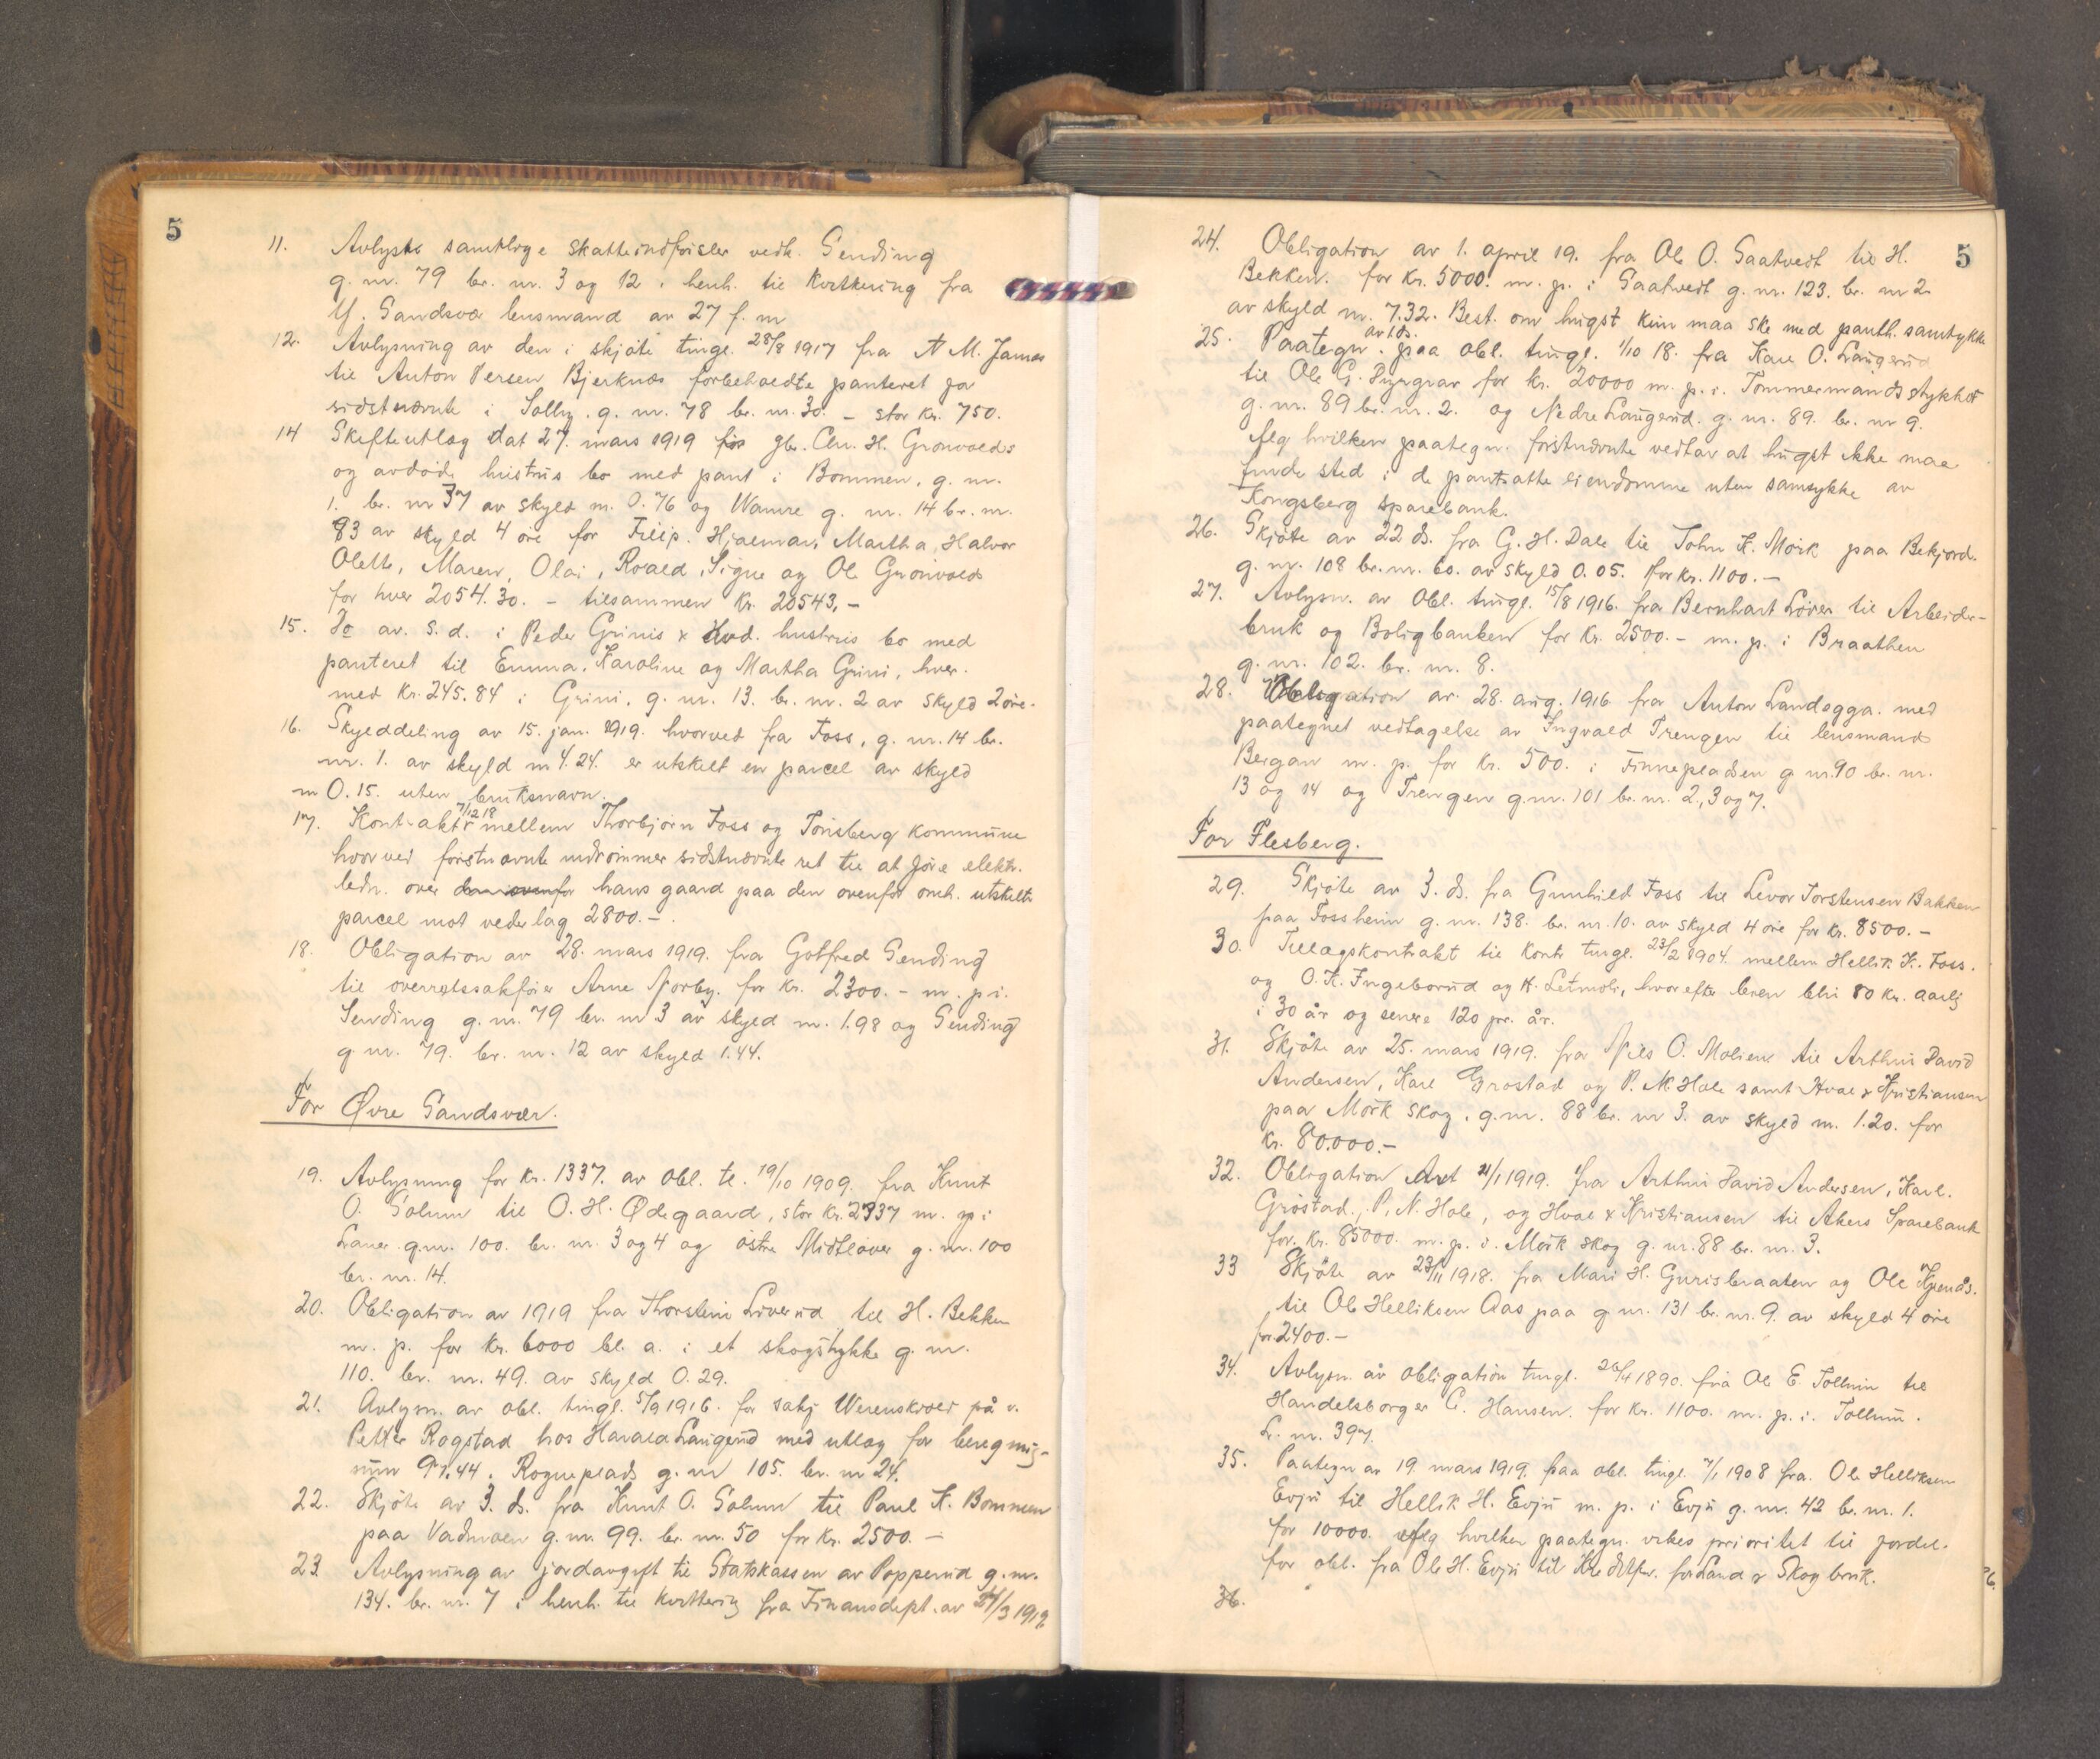 5
11. Avlyste samtlige skatteindførsler vedk. Sending
g. nr. 79 br. nr. 3 og 12 i henh. til kvittering fra
Y. Sandsvær lensmand av 27 f. m
12. Avlysning av den i skjøte tingl. 28/8 1917 fra N M. Jamas
til Anton Versen Bjerknæs forbeholdte panteret for
sidstnævnte i Solby. g. nr. 78 br. nr. 30. – stor kr. 750.
14 Skifteutlæg dat 27. mars 1919 fra gbr. Chr. H. Grønvolds
og avdøde hustrus bo med pant i Bommen, g. nr.
1. br. nr 37 av skyld m. 0.76 og Wamre g. nr. 14 br. nr.
83 av skyld 4 øre for Filip. Hjalmar, Martha, Halvor
Olette, Maren, Olai, Roald, Signe og Ole Grønvold
for hver 2054.30. – tilsammen kr. 20543,–
15. Do av. s. d. i Peder Grinis & avd. hustrus bo med
panteret til Emma, Karoline og Martha Grini, hver.
med kr. 245.84 i Grini, g. nr. 13. br. nr. 2 av skyld 2 øre.
16. Skylddeling av 15. jan. 1919. hvorved fra Foss, g. nr. 14 br.
nr. 1. av skyld m 4.24. er utskilt en parcel av skyld
m 0.15. uten bruksnavn.
17. Kontrakt 7/12 18 mellem Thorbjørn Foss og Tønsberg kommune
hvorved førstnævnte indrømmer sidstnævnte ret til at føre elektr.
ledn. over den ovenfor hans gaard paa den ovenfor omh. utskilte
parcel mot vederlag 2800.–.
18. Obligation av 28. mars 1919. fra Gotfred Sending
til overretssakfører Arne Norby. for kr. 2300.– m. p i.
Sending g. nr. 79 br. nr 3 av skyld m. 1.98 og Sending
g. nr. 79. br. nr. 12 av skyld 1.44.
For Øvre Sandsvær.
19. Avlysning for kr. 1337. av obl. tl. 19/10 1909. fra Knut
O. Solum til O. H. Ødegaard, stor kr. 2337 m. p i
Laver g. nr. 100. br. nr. 3 og 4 og østre Midtløver g. nr. 100
br. nr. 14.
20. Obligation av 1919 fra Thorstein Liverud til H. Bekken
m. p. for kr. 6000 bl. a. i et skogstykke g. nr.
110. br. nr. 49. av skyld 0.29.
21. Avlysn. av obl. tingl. 5/9 1916. for sakf Werenskiold på v.
Petter Rogstad hos Harald Laugerud med utlæg for
97.44. Rogneplads g. nr 105. br. nr 24.
22. Skjøte av 3. ds. fra Knut O. Solum til Paul K. Bommen
paa Vadmoen g. nr. 99. br. nr. 50 for kr. 2500.–
23. Avlysning av jordavgift til Statskassen av Popperud g. nr.
134. br. nr. 7 i henh. til kvittering fra Finansdept. av 27/3 1919.
5
24. Obligation av 1. april 19. fra Ole O. Saatvedt til H.
Bekken. for kr. 5000. m. p. i Saatvedt g. nr. 123. br. nr 2.
av skyld m. 7.32. Best. om hugst kun maa ske med panth. samtykke
25. Paategn. av i ds. paa obl. tingl. 1/10 18. fra Kare O. Laugerud
til Ole G. for kr. 20000 m. p. i. Tømmermandsstykket
g. nr. 89 br. nr. 2. og Nedre Laugerud. g. nr. 89. br. nr 9.
iflg hvilken paategn. førstnævnte vedtar at hugst ikke maa
finde sted i de pantsatte eiendomme uten samtykke av
Kongsberg sparebank.
26. Skjøte av 22 ds. fra G. H. Dale til John K. Mørk paa Bekjord.
g. nr. 108 br. nr. 60. av skyld 0.05. for kr. 1100.–
27. Avlysn. av Obl. tingl. 15/8 1916. fra Bernhart Løver til Arbeider-
bruk og Boligbanken for kr. 2500.– m. p. i Braathen
g. nr. 102. br. nr. 8.
28. Obligation av. 28. aug. 1916 fra Anton Landogga. med
paategnet vedtagelse av Ingvald Trengen til lensmand
Bergan m. p. for kr. 500. i Finnepladsen g nr. 90 br. nr.
13 og 14 og Trengen g. nr. 101 br. nr. 2, 3 og 7.
For Flesberg.
29. Skjøte av 3. ds. fra Gunhild Foss til Levor Torstensen Bakken
paa Fossheim g. nr. 138. br. nr. 10. av skyld 4 øre for kr. 8500.–
30. Tillægskontrakt til kontr tingl. 23/2 1904. mellem Hellik K. Foss.
og O. K. Ingeborud og K. Letmoli, hvorefter leien blir 80 kr. aarlig
i 30 år og senere 120 pr. år.
31. Skjøte av 25. mars 1919. fra Nils O. Molien til Arthur David
Andersen, Karl Grøstad og P. N. Hole samt Hval & Kristiansen
paa Mørk skog. g. nr. 88 br. nr 3. av skyld m. 1.20. for
kr. 80.000.–
32. Obligation dat 21/1 1919. fra Arthur David Andersen, Karl.
Grøstad., P. N. Hole, og Hval & Kristiansen til Akers Sparebank
for. kr. 85000. m. p. i. Mørk skog g. nr. 88 br. nr. 3.
33 Skjøte av 23/11 1918. fra Mari H. Gurisbraaten og Ole
til Ole Helliksen Aas paa g nr. 131 br. nr. 9. av skyld 4 øre
for 2400.–
34. Avlysn. av obligation tingl. 26/4 1890. fra Ole E. Tollum til
Handelsborger C. Hansen. for kr. 1100. m. p. i. Tollum.
L. nr. 397.
35. Paategn av 19 mars 1919. paa obl. tingl. 7/1 1908 fra. Ole Helliksen
Evju til Hellik H. Evju m. p. i Evju g. nr. 42 br. nr. 1.
for 10000. iflg hvilken paategn. vikes prioritet til fordel.
for obl. fra Ole H. Evju til for Land & Skogbruk.
36.